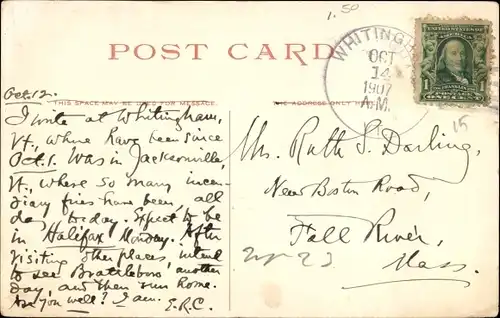 1.50
POST CARD
WHITING
OCT
14
1907
A.M.
UNITED STATES OF AMERICA
FRANKLIN
1
ONE CENT
15
Oct. 12.
THIS SPACE MAY BE USED FOR MESSAGE.
THE ADDRESS ONLY
I write at Whitingham,
Vt., where have been since
Oct. 1. Was in Jacksonville,
Vt., where so many incen-
diary fires have been, all
day to-day. Expect to be
in Halifax Monday. After
visiting other places, intend
to see Brattleboro another
day, and then run home.
Are you well? I am. E.R.C.
Ruth S. Darling,
New Boston Road,
Fall River,
23
Mass.